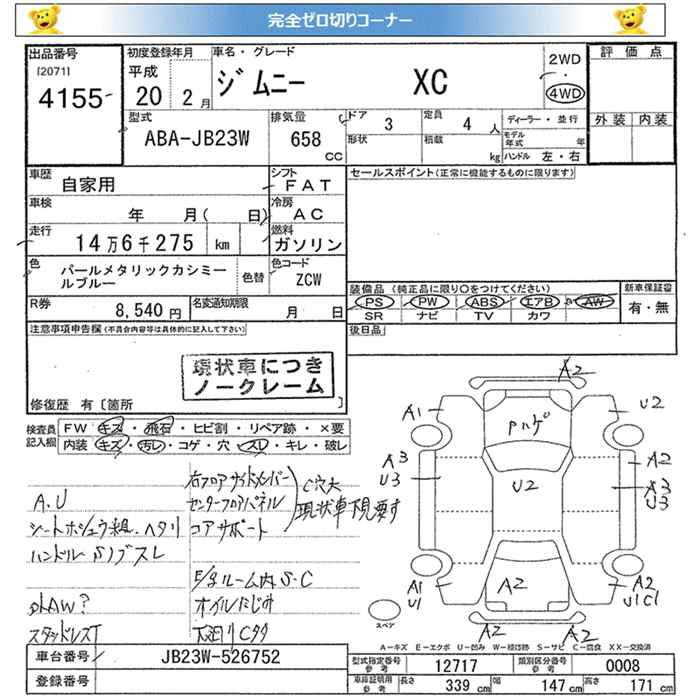 完全ゼロ切りコーナー
出品番号
[2071]
4155
初度登録年月
平成
20 2月
車名・グレード
ジムニー XC
2WD
・
4WD
評価点
外装 内装
型式
ABA-JB23W
排気量
658
CC
ドア 3
形状
定員 4 人
積載 kg
ディーラー・並行
モデル年式 年
ハンドル 左・右
車歴
自家用
シフト
FAT
セールスポイント(正常に機能するものに限ります)
車検
年 月( 日)
冷房
AC
走行
14万6千275 km
燃料
ガソリン
色
パールメタリックカシミールブルー
色替
色コード
ZCW
装備品(純正品に限り○をつけてください)
PS PW ABS エアB AW
SR ナビ TV カワ
新車保証書
有・無
R券
8,540円
名変通知期限
月 日
後日品
注意事項申告欄(不具合内容等は具体的に記入して下さい)
現状車につき
ノークレーム
修復歴 有〔箇所 〕
検査員記入欄
FW キズ・飛石・ヒビ割・リペア跡・×要
内装 キズ・汚レ・コゲ・穴・スレ・キレ・破レ
A.U
シートホジョウ組.ヘタリ
ハンドルS)ブスレ
外AW?
スタッドレスT
右フロアサイドメンバー
センターフロアパネル
コアサポート
C穴大
現状車下見要す
E/gルーム内S.C
オイルにじみ
下廻りCタタ
A2
A1
U2
Pハゲ
A3
U3
U2
A2
A3
U3
A1
U1
A2
A2
U1C1
A2
A2
スペア
A-キズ E-エクボ U-凹み W-補修跡 S-サビ C-腐食 XX-交換済
車台番号
JB23W-526752
登録番号
型式指定番号
参考
12717
類別区分番号
参考
0008
車庫証明用
参考
長さ 339 cm
幅 147 cm
高さ 171 cm